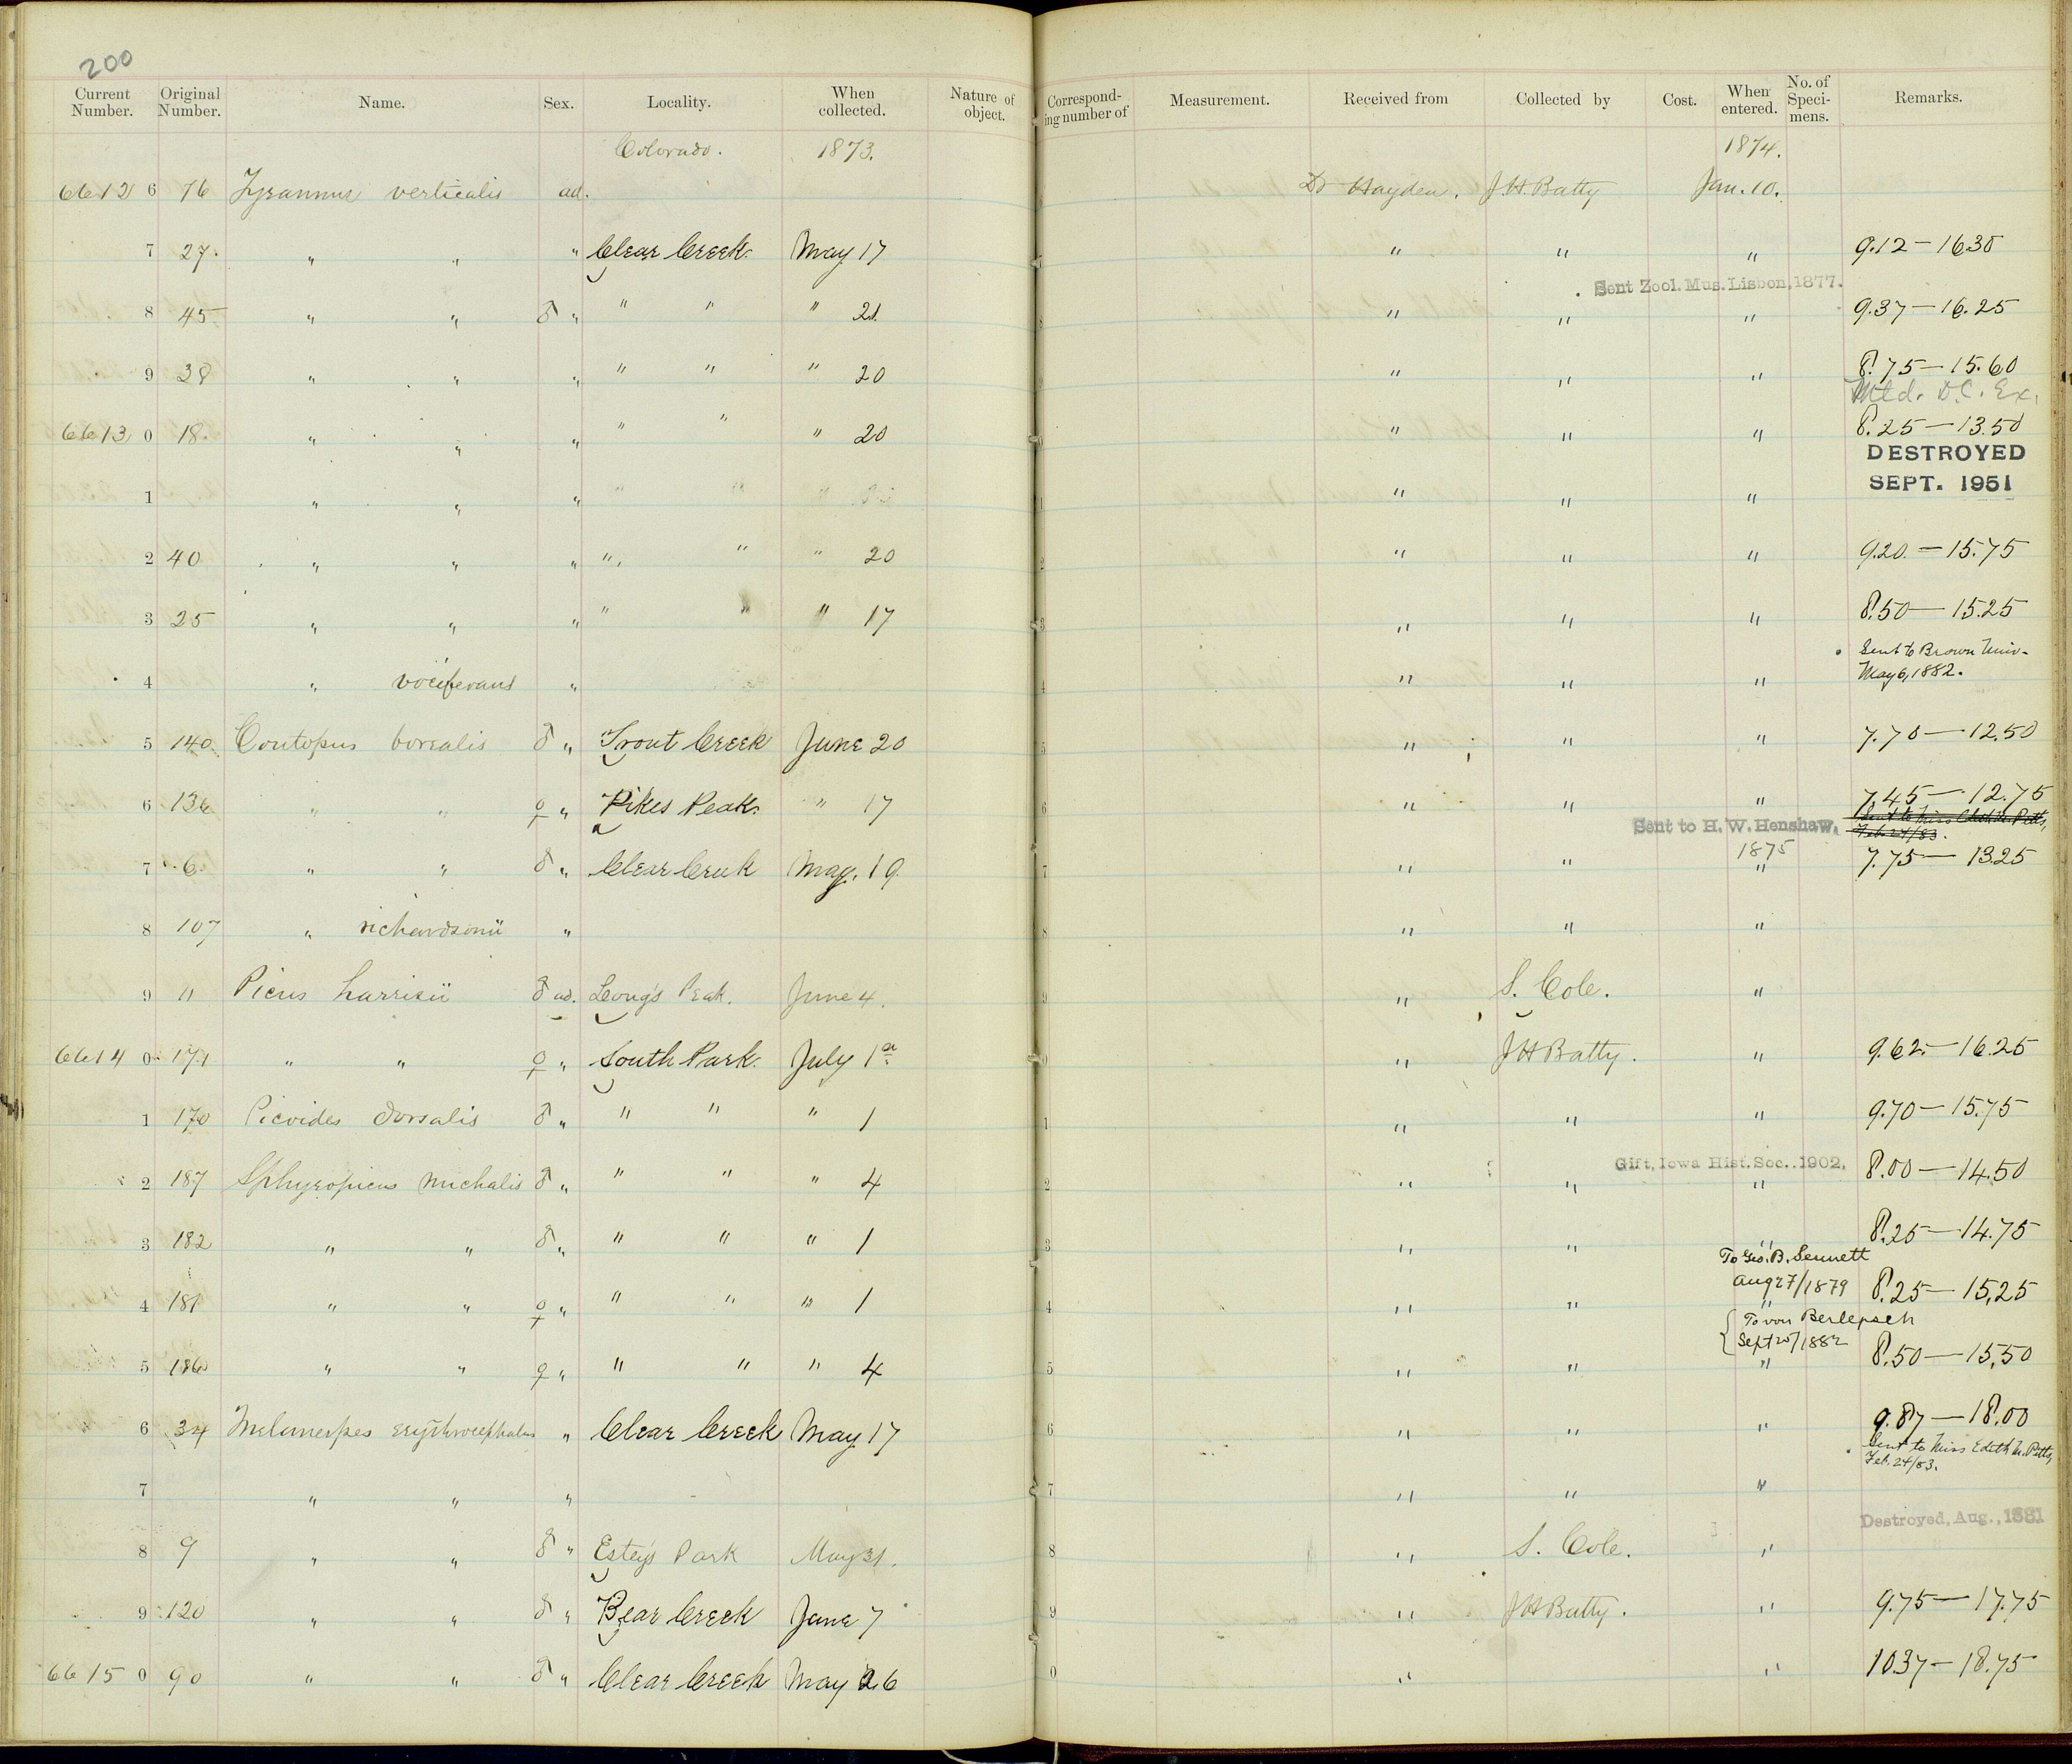 200
Current Number. Original Number. Name. Sex. Locality. When collected. Nature of object. Corresponding number of Measurement. Received from Collected by Cost. When entered. No. of Specimens. Remarks.
Colorado. 1873. 1874.
6612 6 76 Tyrannus verticalis ad. Dr Hayden. J.H. Batty Jan. 10.
7 27. " " " Clear Creek. May 17 " " " 9.12 — 16.30
Sent Zool. Mus. Lisbon, 1877.
8 45 " " ♂ " " " " 21. " " " 9.37 — 16.25
9 38 " " " " " " 20 " " " 8.75 — 15.60
Mtd. D.C. Ex.
6613 0 18. " " " " " " 20 " " " 8.25 — 13.50
DESTROYED
SEPT. 1951
1 " " " " " " " " "
2 40 " " " " " " 20 " " " 9.20 — 15.75
3 25 " " " " " " 17 " " " 8.50 — 15.25
Sent to Brown Univ-
May 6, 1882.
4 " vociferans " " " "
5 140 Contopus borealis ♂ " Trout Creek June 20 " " " 7.70 — 12.50
6 136 " " ♀ " Pikes Peak. " 17 " " " 7.45 — 12.75
Sent to H. W. Henshaw, 1875
Feb. 24/83.
7 6 " " ♂ " Clear Creek May. 19 " " " 7.75 — 13.25
8 107 " richardsonii " " " "
9 11 Picus harrisii ♂ ad. Long's Peak. June 4. " S. Cole. "
6614 0 171 " " ♀ " South Park. July 1st " J H Batty. " 9.62 — 16.25
1 170 Picoides dorsalis ♂ " " " " 1 " " " 9.70 — 15.75
Gift, Iowa Hist. Soc., 1902.
2 187 Sphyropicus nuchalis ♂ " " " " 4 " " " 8.00 — 14.50
3 182 " " ♂ " " " " 1 " " " 8.25 — 14.75
To Geo. B. Sennett
Aug 27/1879
4 181 " " ♀ " " " " 1 " " " 8.25 — 15.25
To von Berlepsch
Sept 20/1882
5 186 " " ♀ " " " " 4 " " " 8.50 — 15.50
6 34 Melanerpes erythrocephalus " Clear Creek May 17 " " " 9.87 — 18.00
Sent to Miss Edith M. Pitts,
Feb. 24/83.
7 " " " " " "
Destroyed, Aug., 1881
8 9 " " ♂ " Estey's Park May 31. " S. Cole. "
9 120 " " ♂ " Bear Creek June 7 " J H Batty. " 9.75 — 17.75
6615 0 90 " " ♂ " Clear Creek May 26 " " 10.37 — 18.75